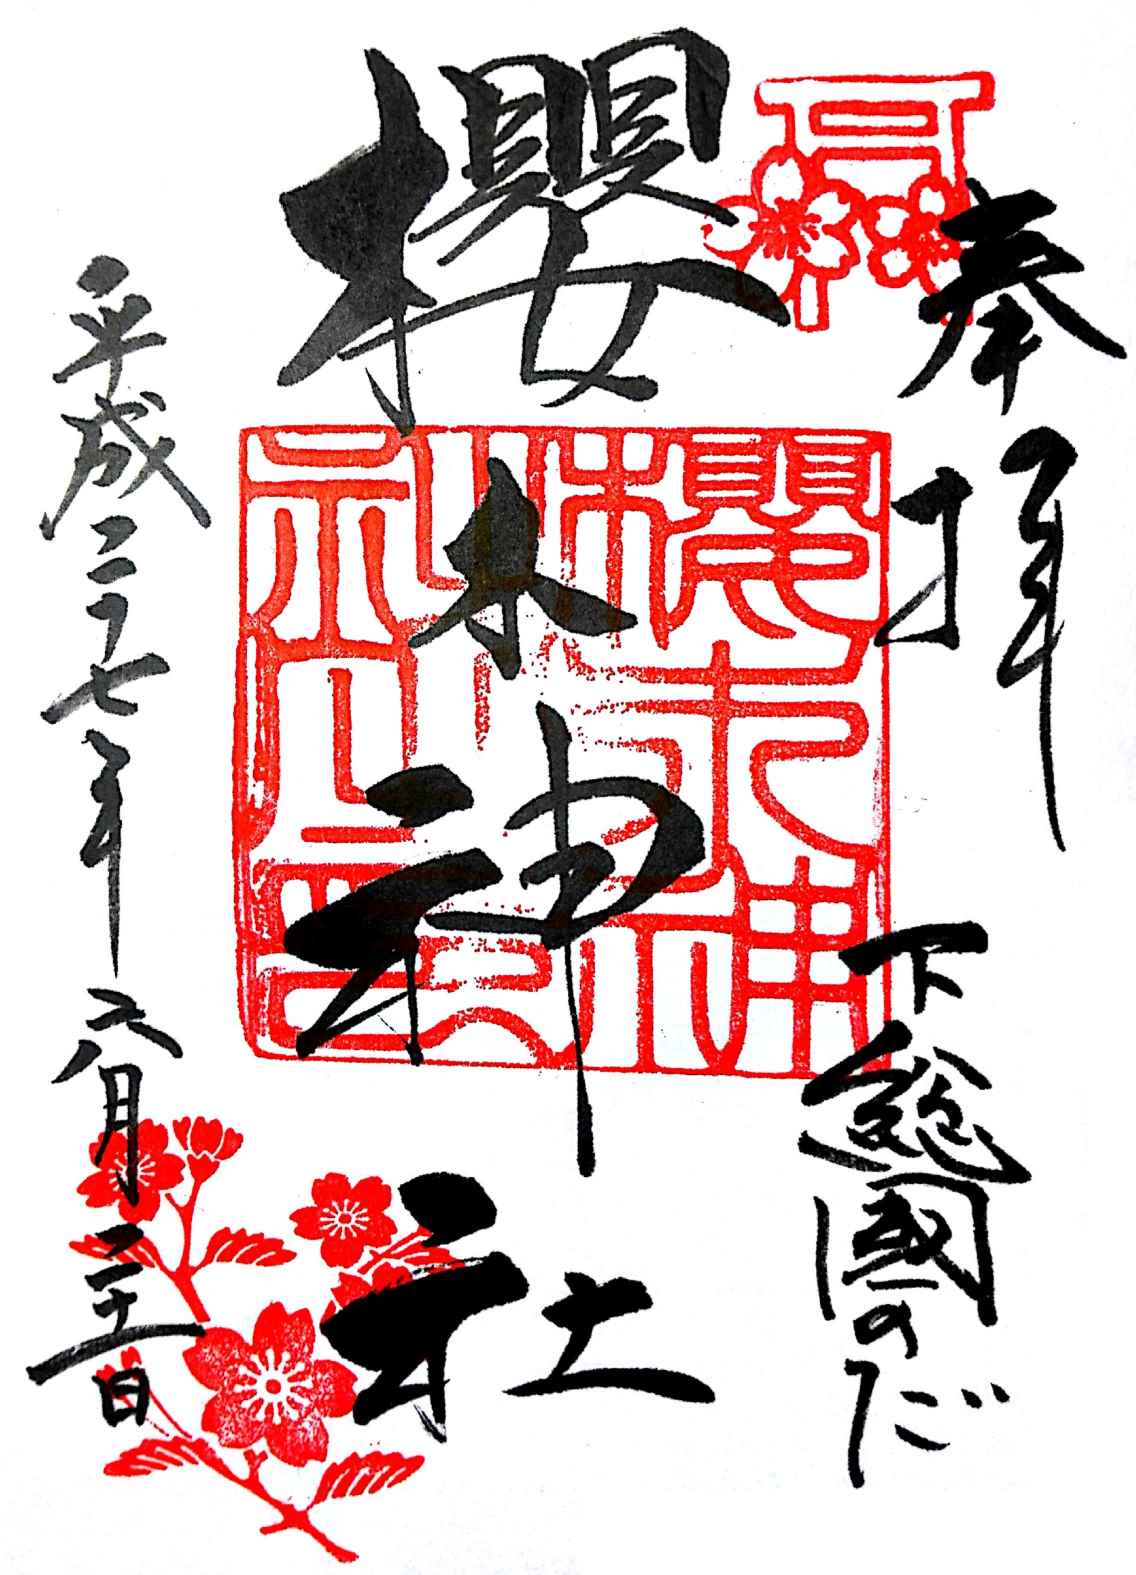 奉拝
下総國のだ
櫻木神社
櫻木神
社之印
平成二十七年六月二十一日